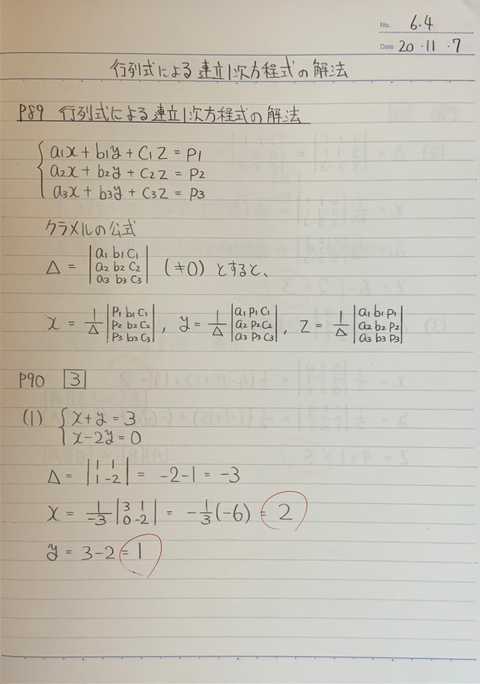 No. 6.4
Date 20・11・7
行列式による連立1次方程式の解法
P89 行列式による連立1次方程式の解法
a₁x + b₁y + c₁z = p₁
a₂x + b₂y + c₂z = p₂
a₃x + b₃y + c₃z = p₃
クラメルの公式
Δ = |a₁ b₁ c₁; a₂ b₂ c₂; a₃ b₃ c₃| (≠0) とすると、
x = 1/Δ |p₁ b₁ c₁; p₂ b₂ c₂; p₃ b₃ c₃|, y = 1/Δ |a₁ p₁ c₁; a₂ p₂ c₂; a₃ p₃ c₃|, z = 1/Δ |a₁ b₁ p₁; a₂ b₂ p₂; a₃ b₃ p₃|
P90 3
(1) x + y = 3
x - 2y = 0
Δ = |1 1; 1 -2| = -2 - 1 = -3
x = 1/-3 |3 1; 0 -2| = -1/3 (-6) = 2
y = 3 - 2 = 1